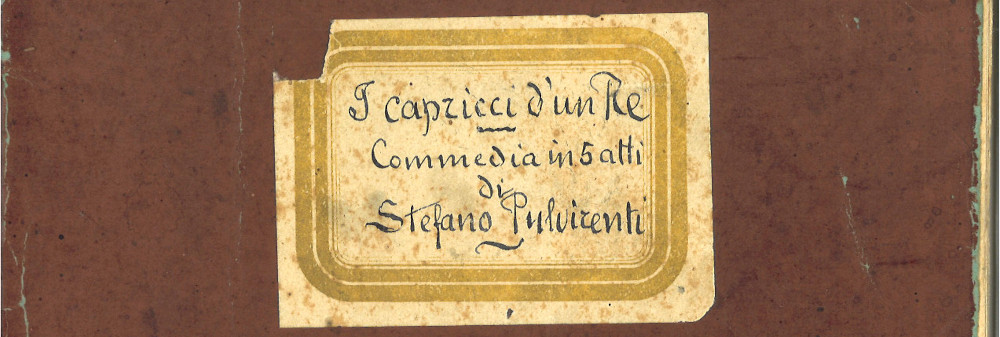 I capricci d'un Re
Commedia in 5 atti
di
Stefano Pulvirenti